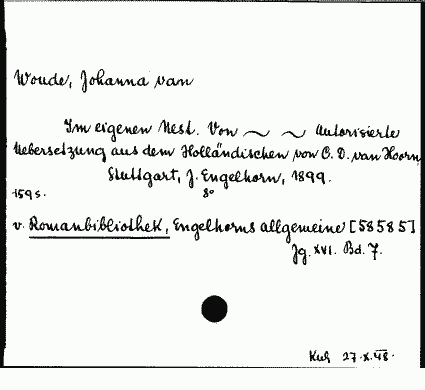 Woude, Johanna van
Im eigenen Nest. Von ~ ~ Autorisierte
Uebersetzung aus dem Holländischen von C. D. van Hoorn
Stuttgart, J. Engelhorn, 1899.
159 s. 8°
v. Romanbibliothek, Engelhorns allgemeine [58585]
Jg. XVI. Bd. 7.
27.X.48.